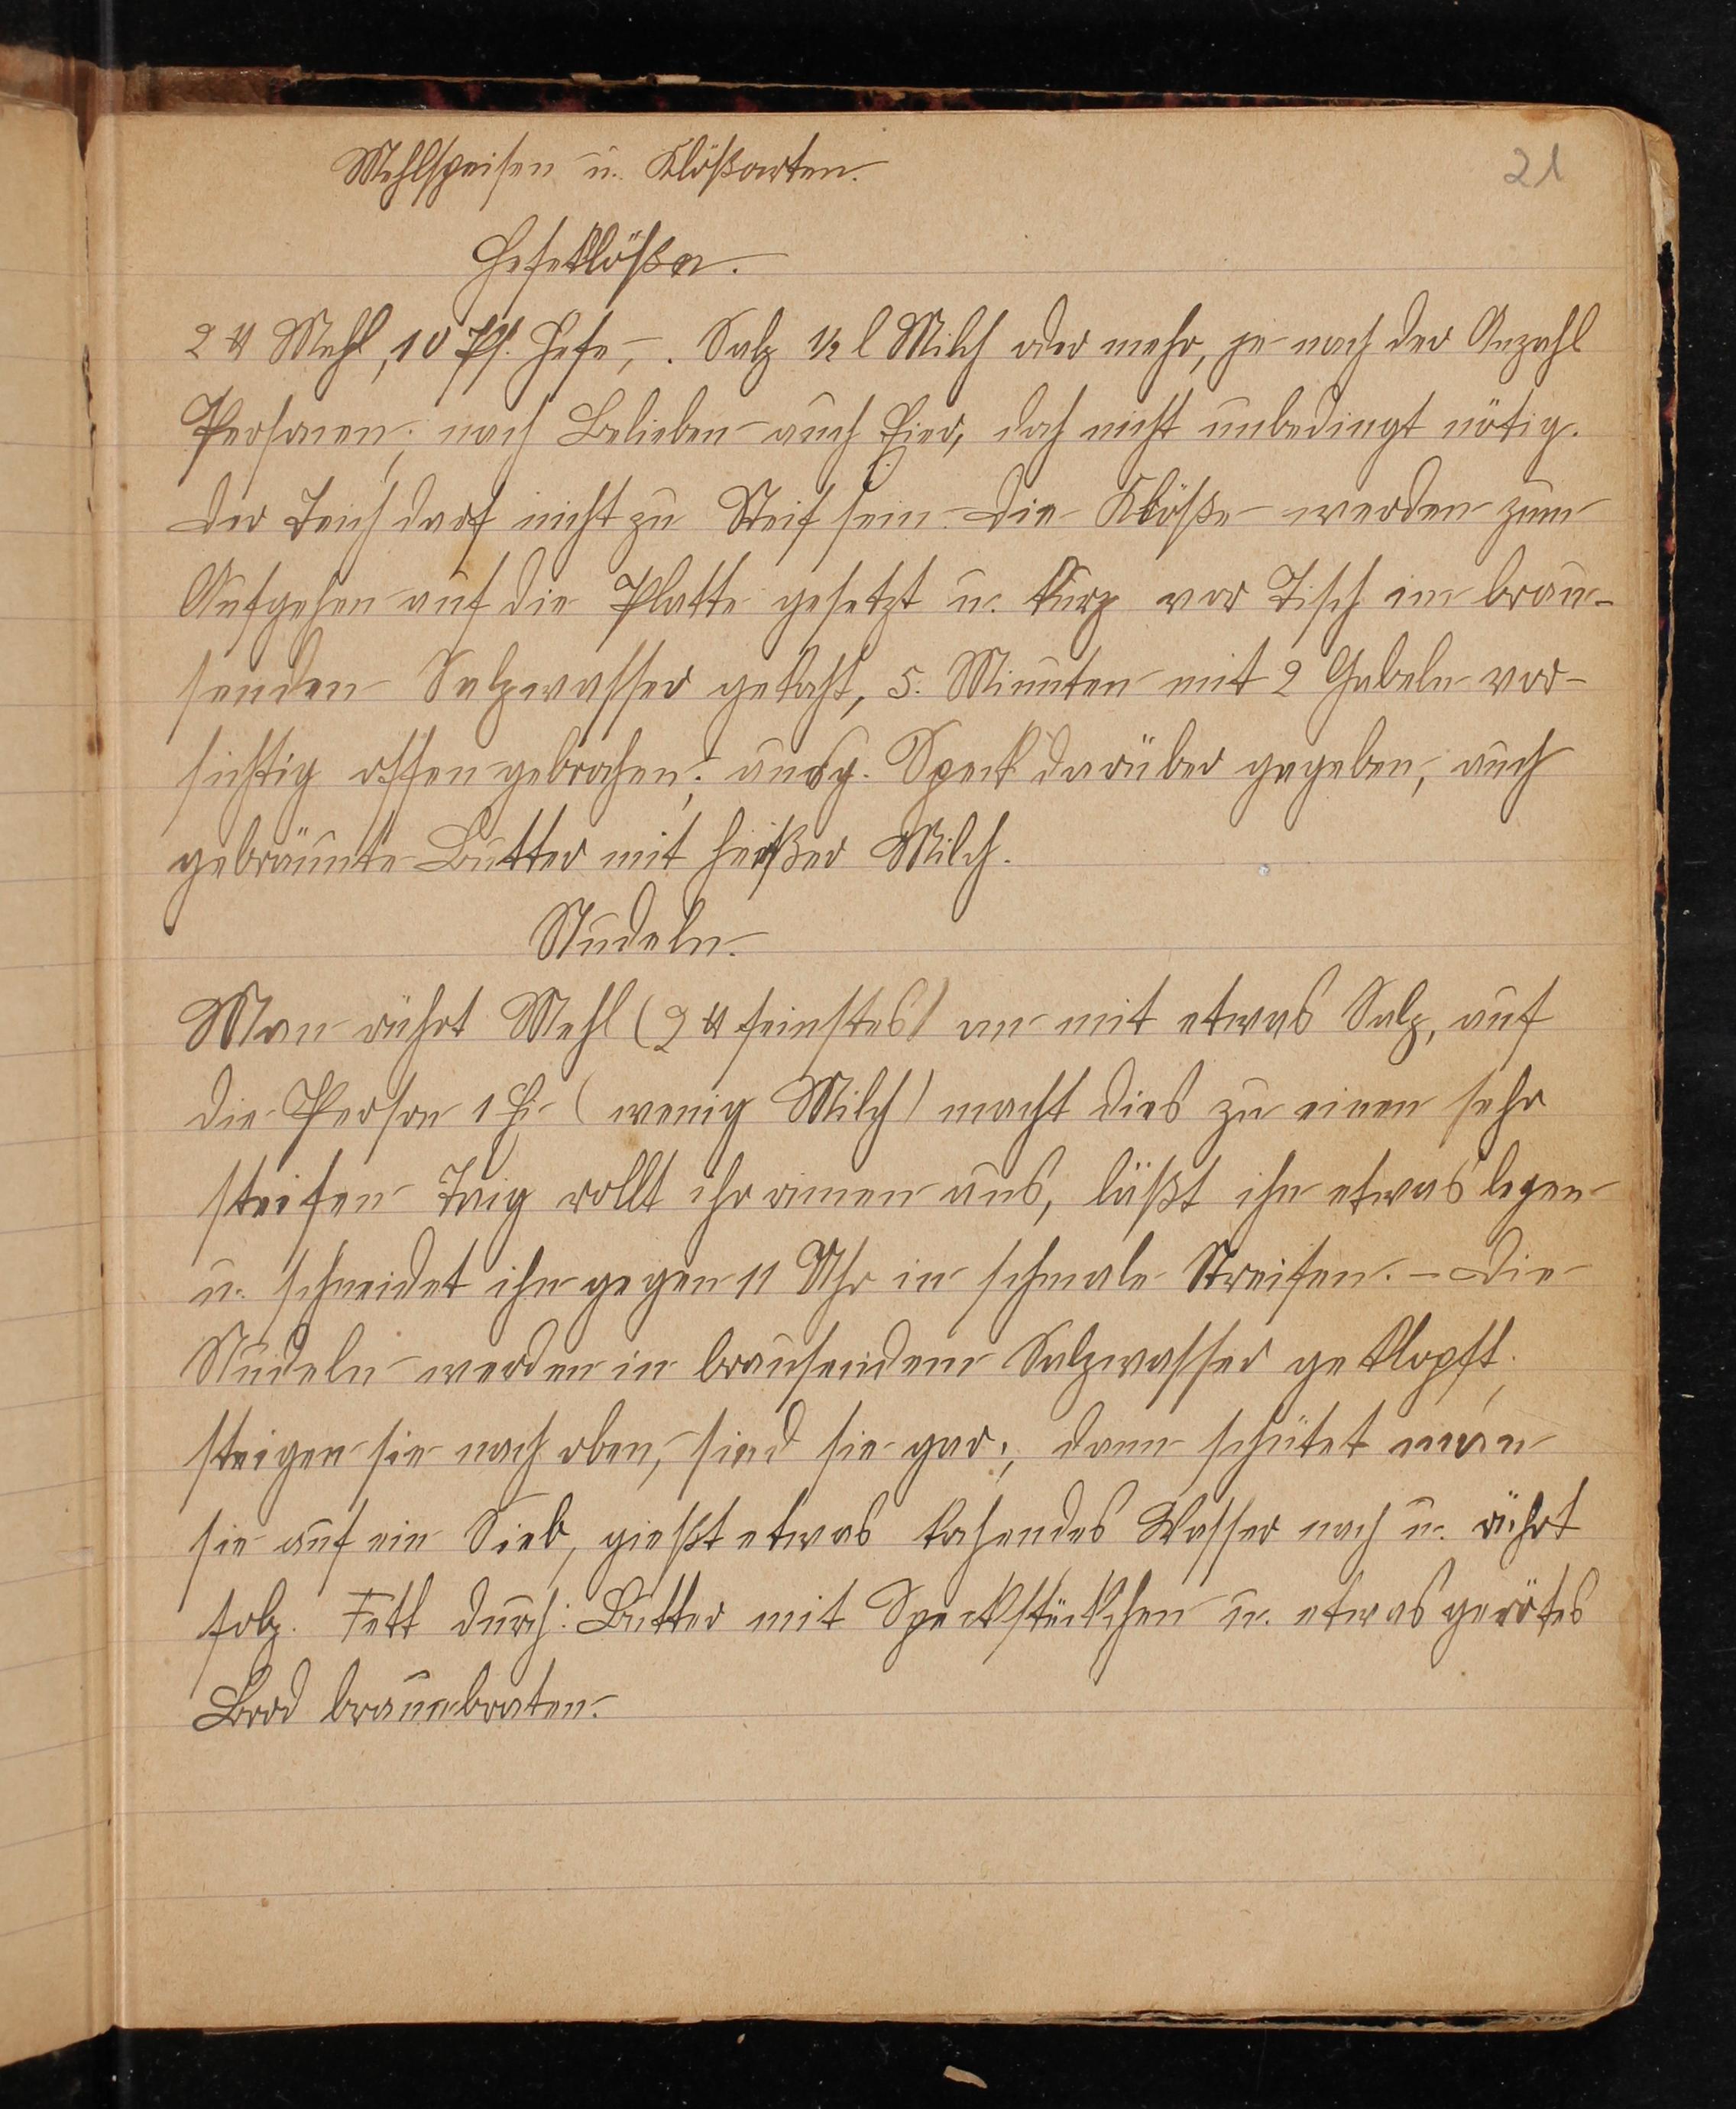 Mehlspeisen u. Klößarten.
21
Hefeklöße.
2 ℔ Mehl, 10 Pf. Hefe, . Salz ½ l Milch oder mehr, je nach der Anzahl
Personen; nach Belieben auch Eier, doch nicht unbedingt nötig.
Der Teich darf nicht zu Steif sein. Die Klöße werden zum
Aufgehen auf die Platte gesetzt u. kurz vor Tisch im brau-
senden Salzwasser gekocht, 5. Minuten mit 2 Gabeln vor-
sichtig offen gebrochen; ausg. Speck darüber gegeben, auch
gebräunte Butter mit heißer Milch.
Nudeln.
Man rührt Mehl (2 ℔ feinstes) an mit etwas Salz, auf
die Person 1 Ei (wenig Milch) macht dies zu einen sehr
steifen Teig rollt ihn aus, läßt ihn etwas legen
u. schneidet ihn gegen 11 Uhr in schmale Streifen. – Die
Nudeln werden in brausendem Salzwasser geklopft;
steigen sie nach oben, sind sie gar; dann schütet man
sie auf ein Sieb, gießt etwas kochendes Wasser nach u. rührt
folg. Fett durch: Butter mit Speckstückchen u. etwas
Brod braunbraten.